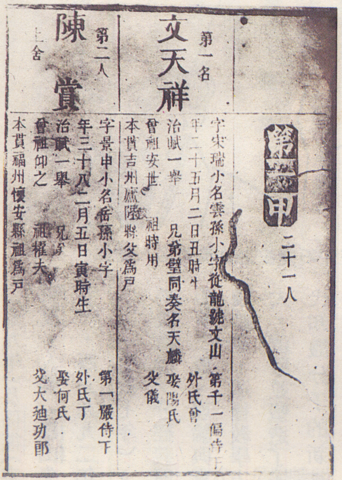 第一甲
二十一人
第一名
文天祥
字宋瑞小名雲孫小字從龍 文山 第千一偏侍下
年二十五月二日丑時生 外氏曾
治賦一舉 兄弟璧同奏名天麟 娶歐陽氏
曾祖安世 祖時用 父儀
本貫吉州廬陵縣父為戶
第二人
陳賞
上舍
字景申小名岳孫小字 第一嚴侍下
年三十八 二月五日寅時生 外氏丁
治賦一舉 兄弟 娶何氏
曾祖仰之 祖權夫 父大 迪功郎
本貫福州懷安縣祖為戶